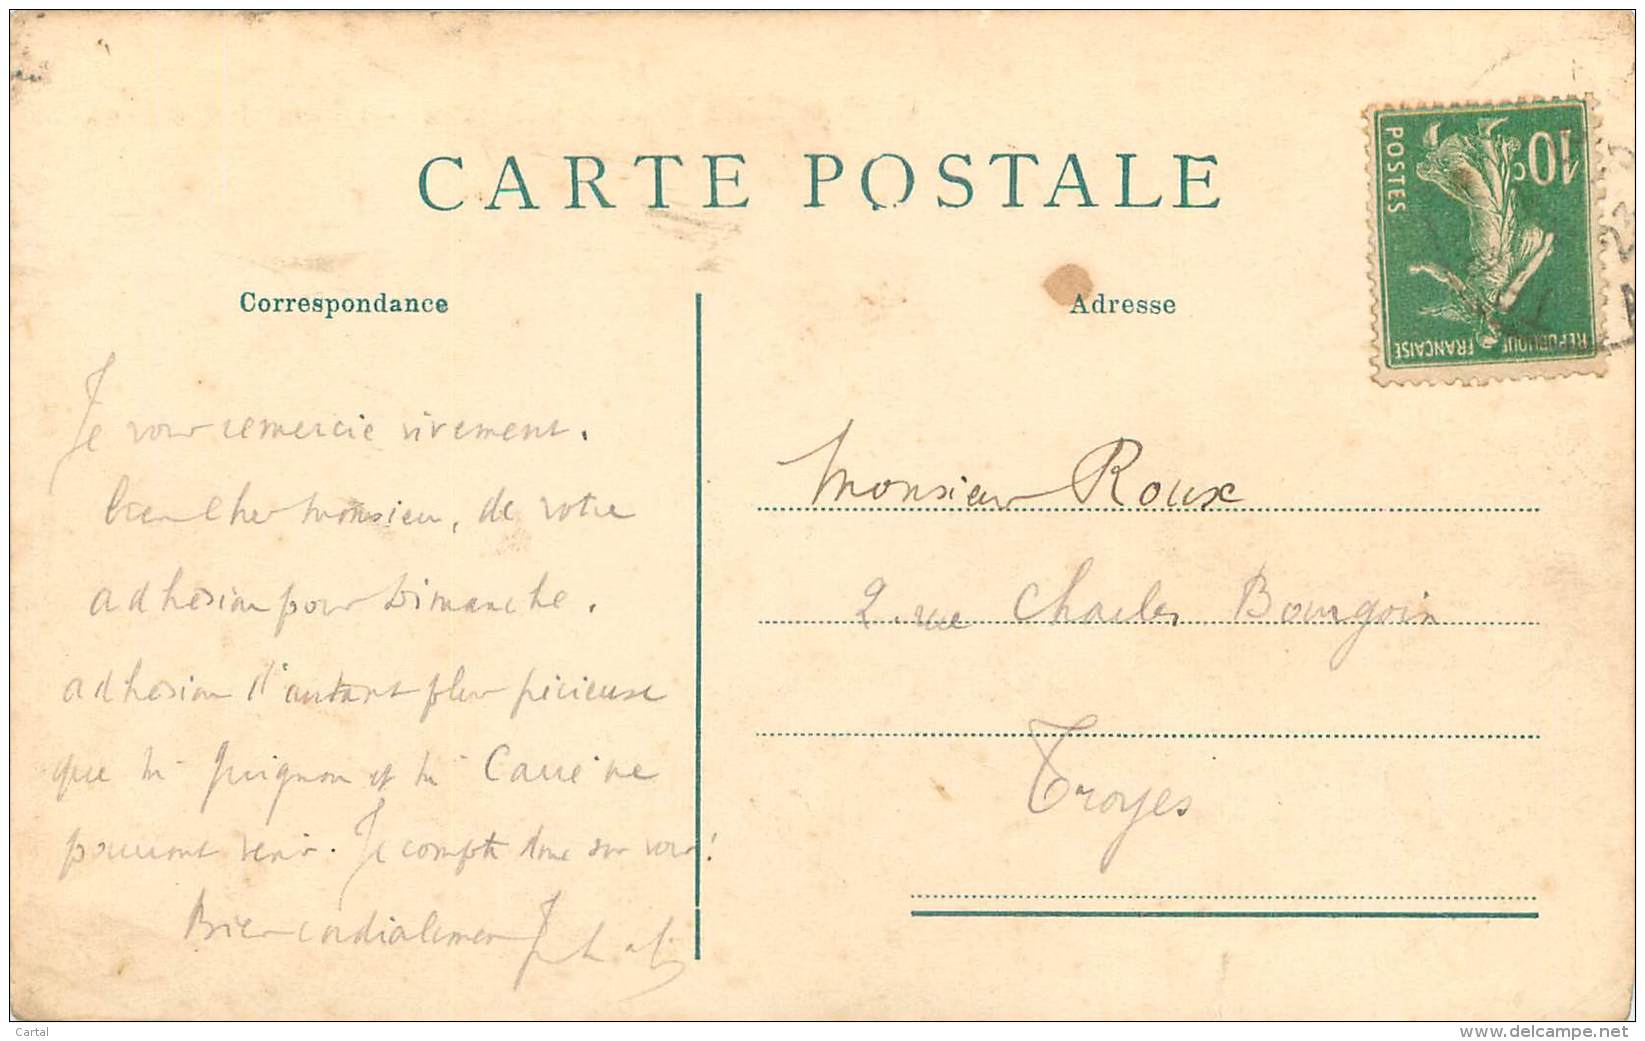 CARTE POSTALE
Correspondance
Je vous remercie vivement.
bien cher Monsieur, de votre
adhésion pour Dimanche.
adhésion d'autant plus précieuse
que ni et ni
pourront venir. Je compte donc sur vous!
Bien cordialement
Adresse
10c
POSTES
REPUBLIQUE FRANCAISE
23
Monsieur Roux
2. rue Charles Bourgoin
Troyes
Cartal
www.delcampe.net